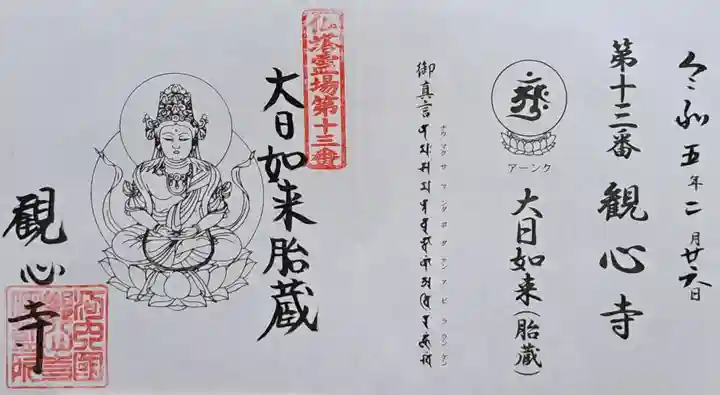 令和五年二月廿六日
第十三番 観心寺
アーンク
大日如来(胎蔵)
御真言
ナウマクサマンダボダナンアビラウンケン
仏塔霊場第十三番
大日如来胎蔵
観心寺